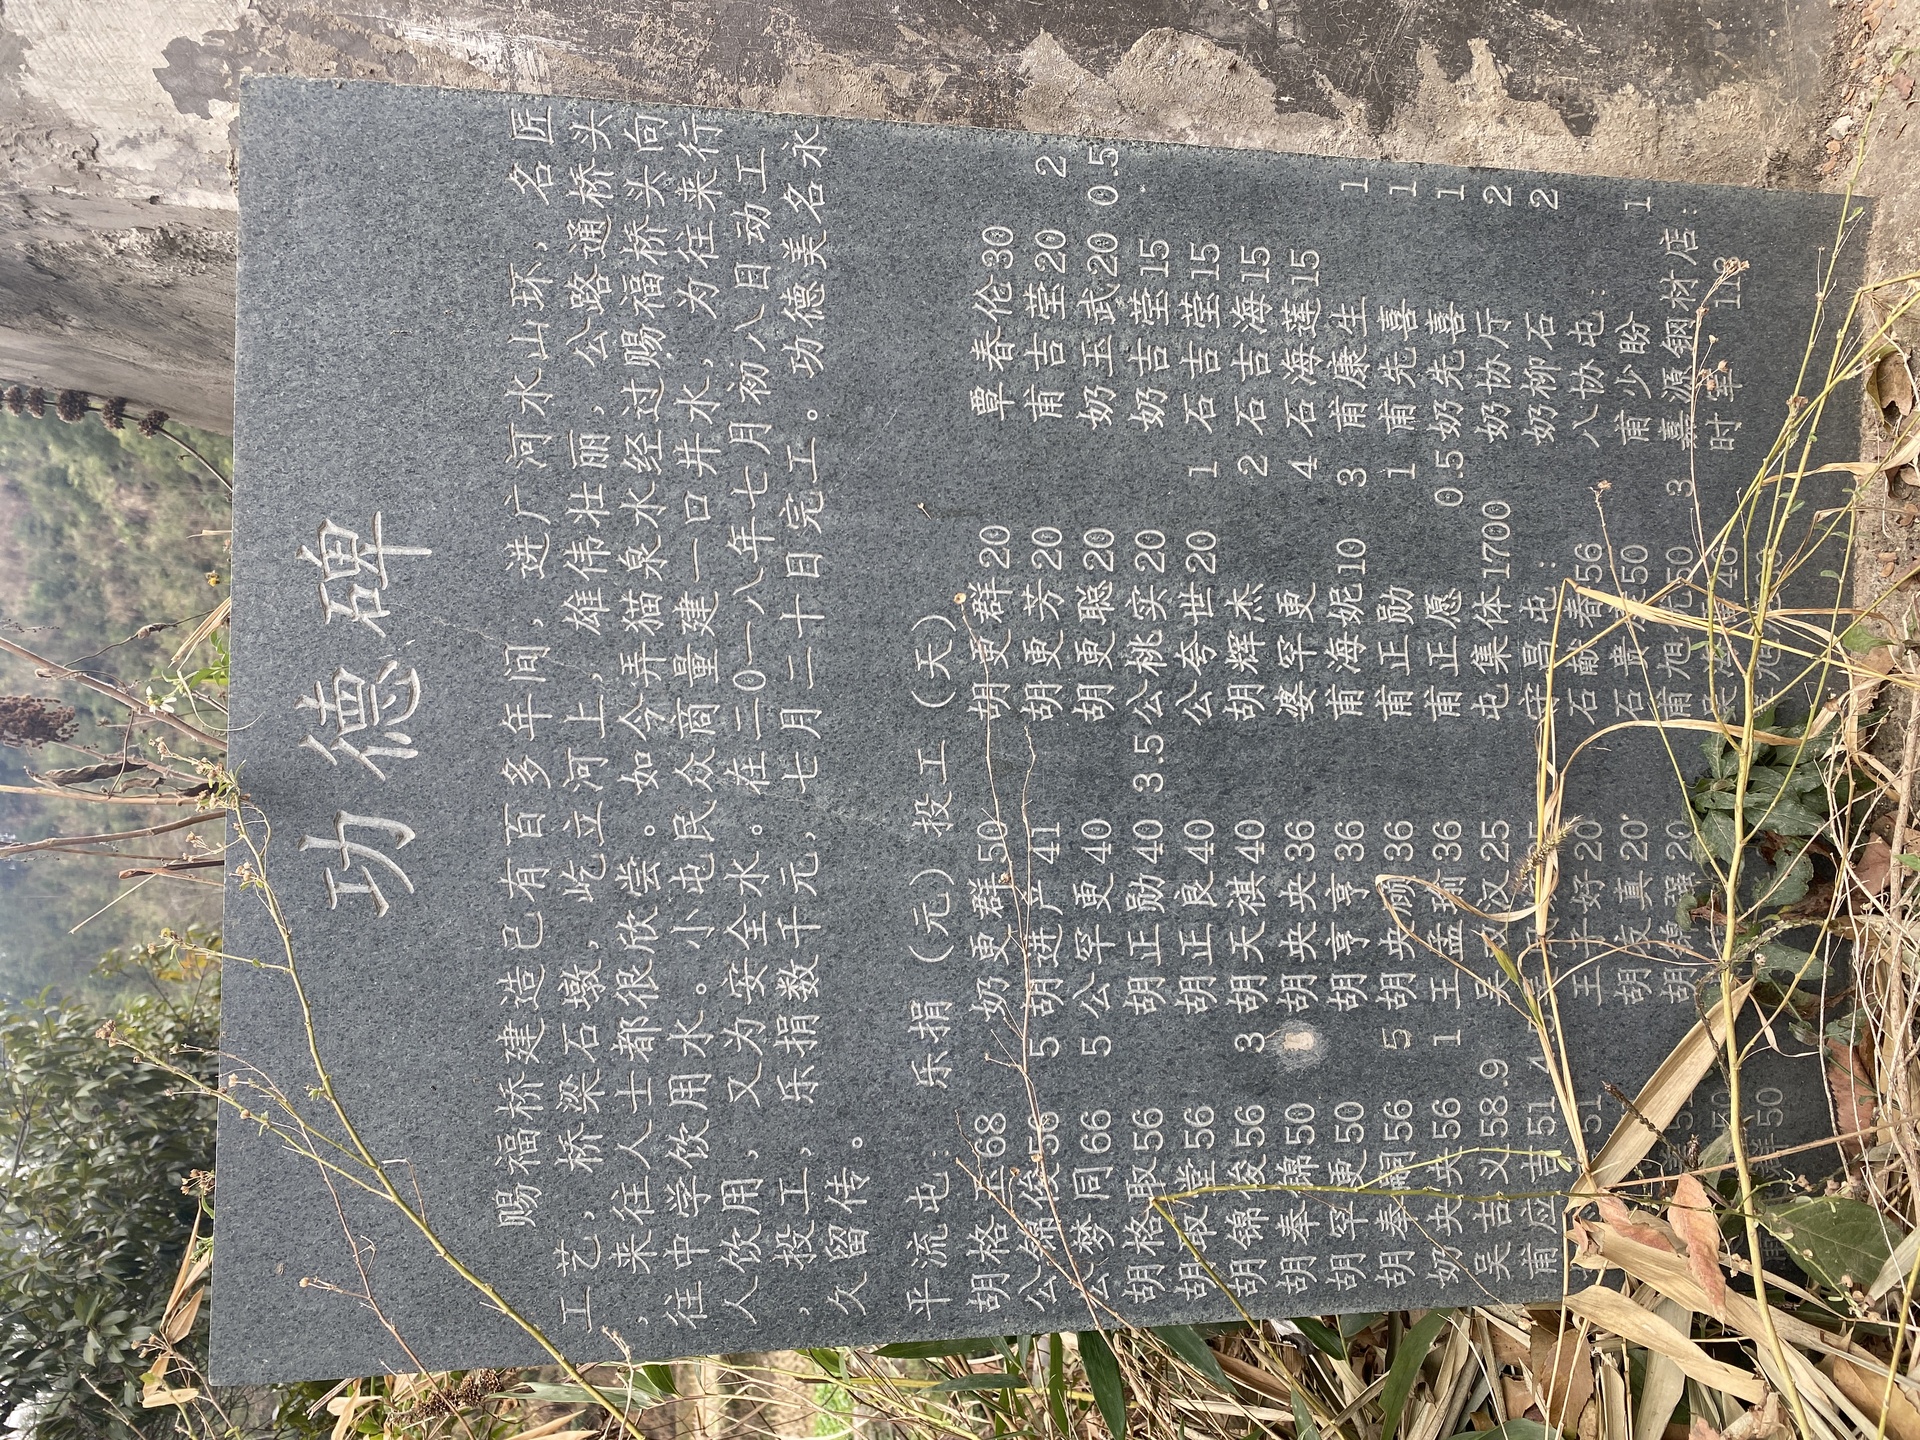 功德碑
赐福桥建造已有百多年间，进广河水山环，名匠
工艺，桥梁石墩，屹立河上，雄伟壮丽，公路通桥头
，来往人士都很欣尝。如今弄猫泉水经过赐福桥头向
往中学饮用水。小屯民众商量建一口井水，为往来行
人饮用，又为安全水。在二0一八年七月初八日动工
，投工，乐捐数千元，七月二十日完工。功德美名永
久留传。
平流屯： 乐捐（元）投工（天）
胡格至68 奶更群50 胡更群20 覃春伦30
公锦俊56 5 胡进产41 胡更芳20 甫吉莹20 2
公梦同66 5 公罕更40 胡更聪20 奶玉武20 0.5
胡格取56 胡正勋40 3.5 公桃实20 奶吉莹15
胡取堂56 胡正良40 公夸世20 1 石吉莹15
胡锦俊56 3 胡天祺40 胡辉杰 2 石吉海15
胡奉锦50 胡央央36 婆罕更 4 石海莲15
胡罕更50 胡亨亨36 甫海妮10 3 甫康生 1
胡奉嗣56 5 胡央颀36 甫正勋 1 甫先喜 1
奶央央56 1 王孟瑜36 甫正愿 0.5 奶先喜 1
吴吉义58.9 吴汉25 屯集体1700 奶协厅 2
甫应吉51 4 守昌屯： 奶柳石 2
51 王子好20 石献春56 八协屯：
胡友真20 石贵50 甫少盼 1
胡锦强20 甫旭伦50 3 熹源钢材店：
50 46 时军118
50